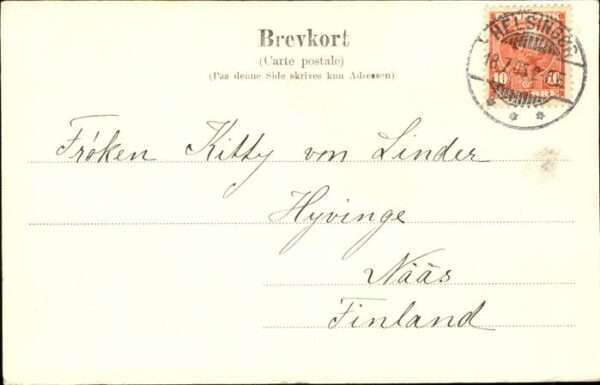 Brevkort
(Carte postale)
(Paa denne Side skrives kun Adressen)
HELSINGØR
10 10
Fröken Kitty von Linder
Hyvinge
Nääs
Finland